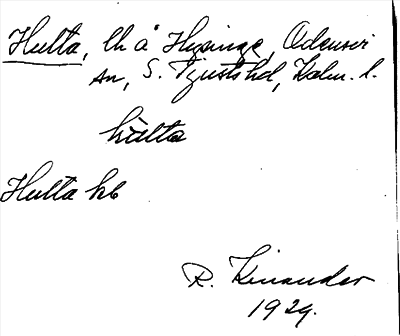 Hulta, lh å Hysinge, Odensvi
sn, S. Tjusts hd, Kalm. l.
hùlta
Hulta hb
R. Kinander
1929.